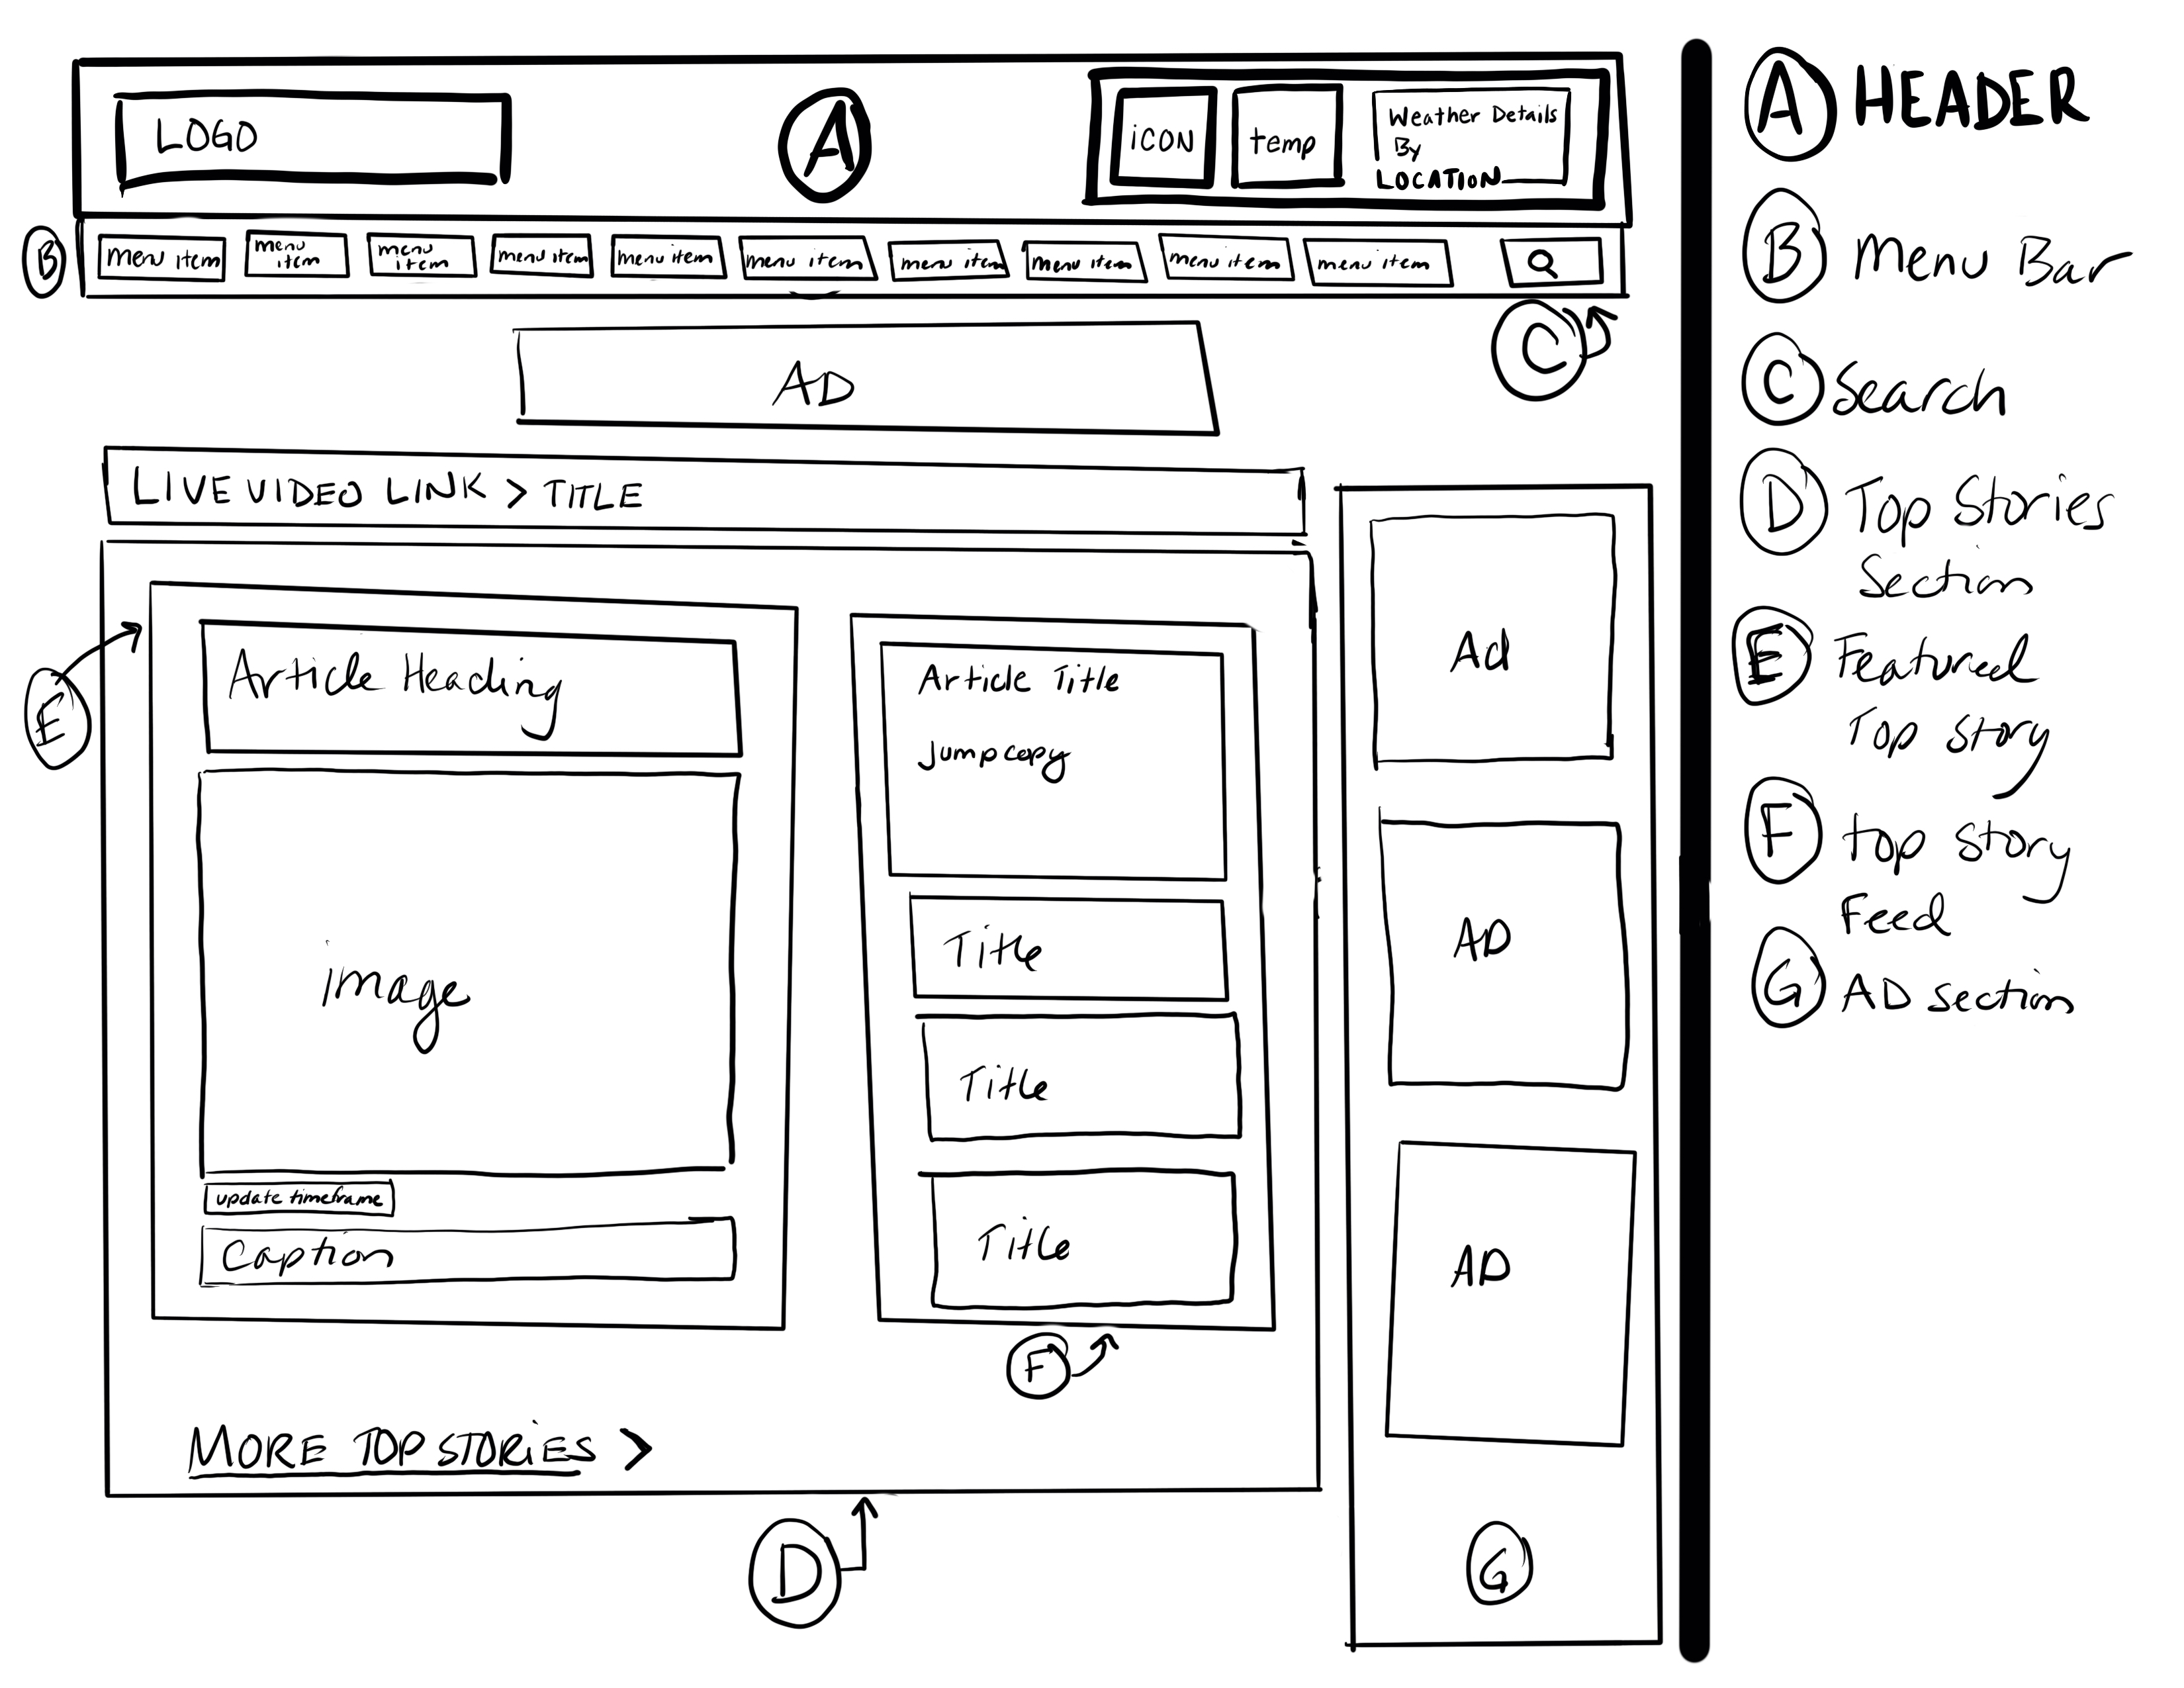 LOGO
A
iCON
temp
Weather Details
By
LOCATION
B
menu item
menu
item
menu
item
menu item
menu item
menu item
menu item
menu item
menu item
menu item
C
AD
LIVE VIDEO LINK > TITLE
E
Article Heading
image
update timeframe
Caption
Article Title
Jump copy
Title
Title
Title
F
MORE TOP STORIES >
D
Ad
AD
AD
G
A HEADER
B Menu Bar
C Search
D Top Stories
Section
E Featured
Top Story
F top Story
Feed
G AD section